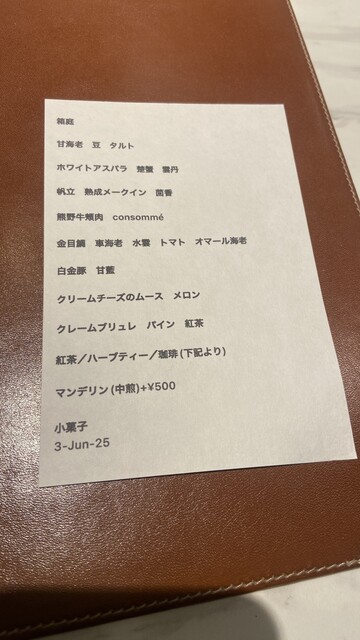 箱庭
甘海老 豆 タルト
ホワイトアスパラ 楚蟹 雲丹
帆立 熟成メークイン 茴香
熊野牛頬肉 consommé
金目鯛 車海老 水雲 トマト オマール海老
白金豚 甘藍
クリームチーズのムース メロン
クレームブリュレ パイン 紅茶
紅茶／ハーブティー／珈琲(下記より)
マンデリン(中煎)+¥500
小菓子
3-Jun-25